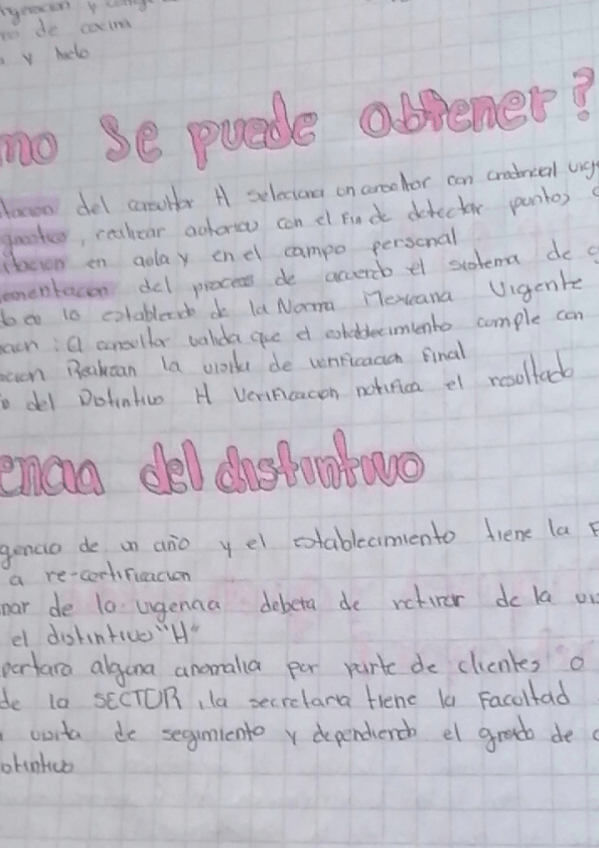 de cocina
y hielo
mo se puede obtener?
del consultor H selecciona un consultor con credencial vige
, realizar autorías con el fin de detectar puntos
en aula y en el campo personal
ementación del proceso de acuerdo el sistema de
lo establecido de la Norma Mexicana Vigente
: El consultor valida que el establecimiento cumple con
Realizan la visita de verificación final
del Distintivo H Verificación notifica el resultado
encia del distintivo
gencia de un año y el establecimiento tiene la F
a re-certificación
nar de la vigencia debera de retirar de la
el distintivo "H"
portara alguna anomalia por parte de clientes o
de la SECTUR, la secretaria tiene la Facultad
visita de segimiento y dependiendo el grado de